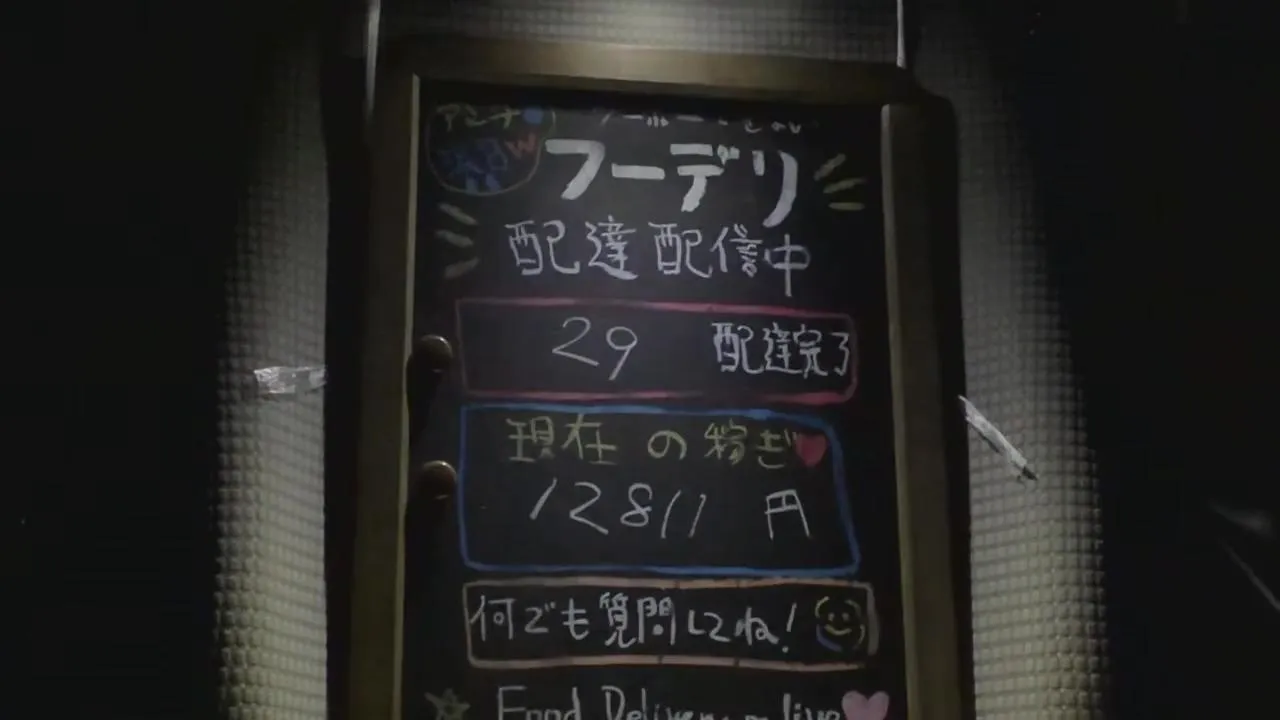 アンチ
フーデリ
配達配信中
29 配達完了
現在の稼ぎ
12811 円
何でも質問してね!
Food Delivery live